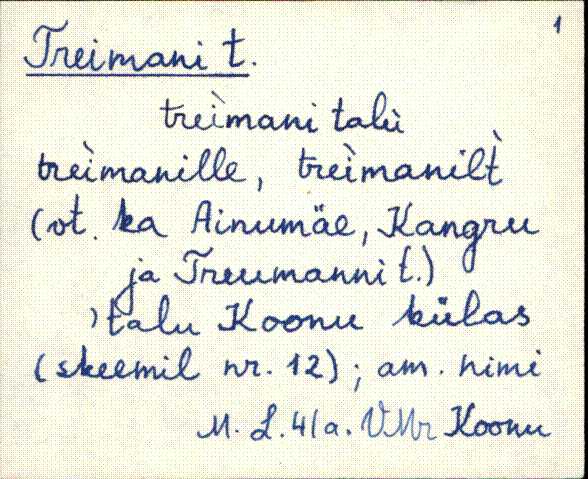 1
Treimani t.
treìmani talù
treìmanille, treìmanilt̀
(vt. ka Ainumäe, Kangru
ja Treumanni t.)
, talu Koonu külas
(skeemil nr. 12); am. nimi
M. L. 41a. VMr Koonu